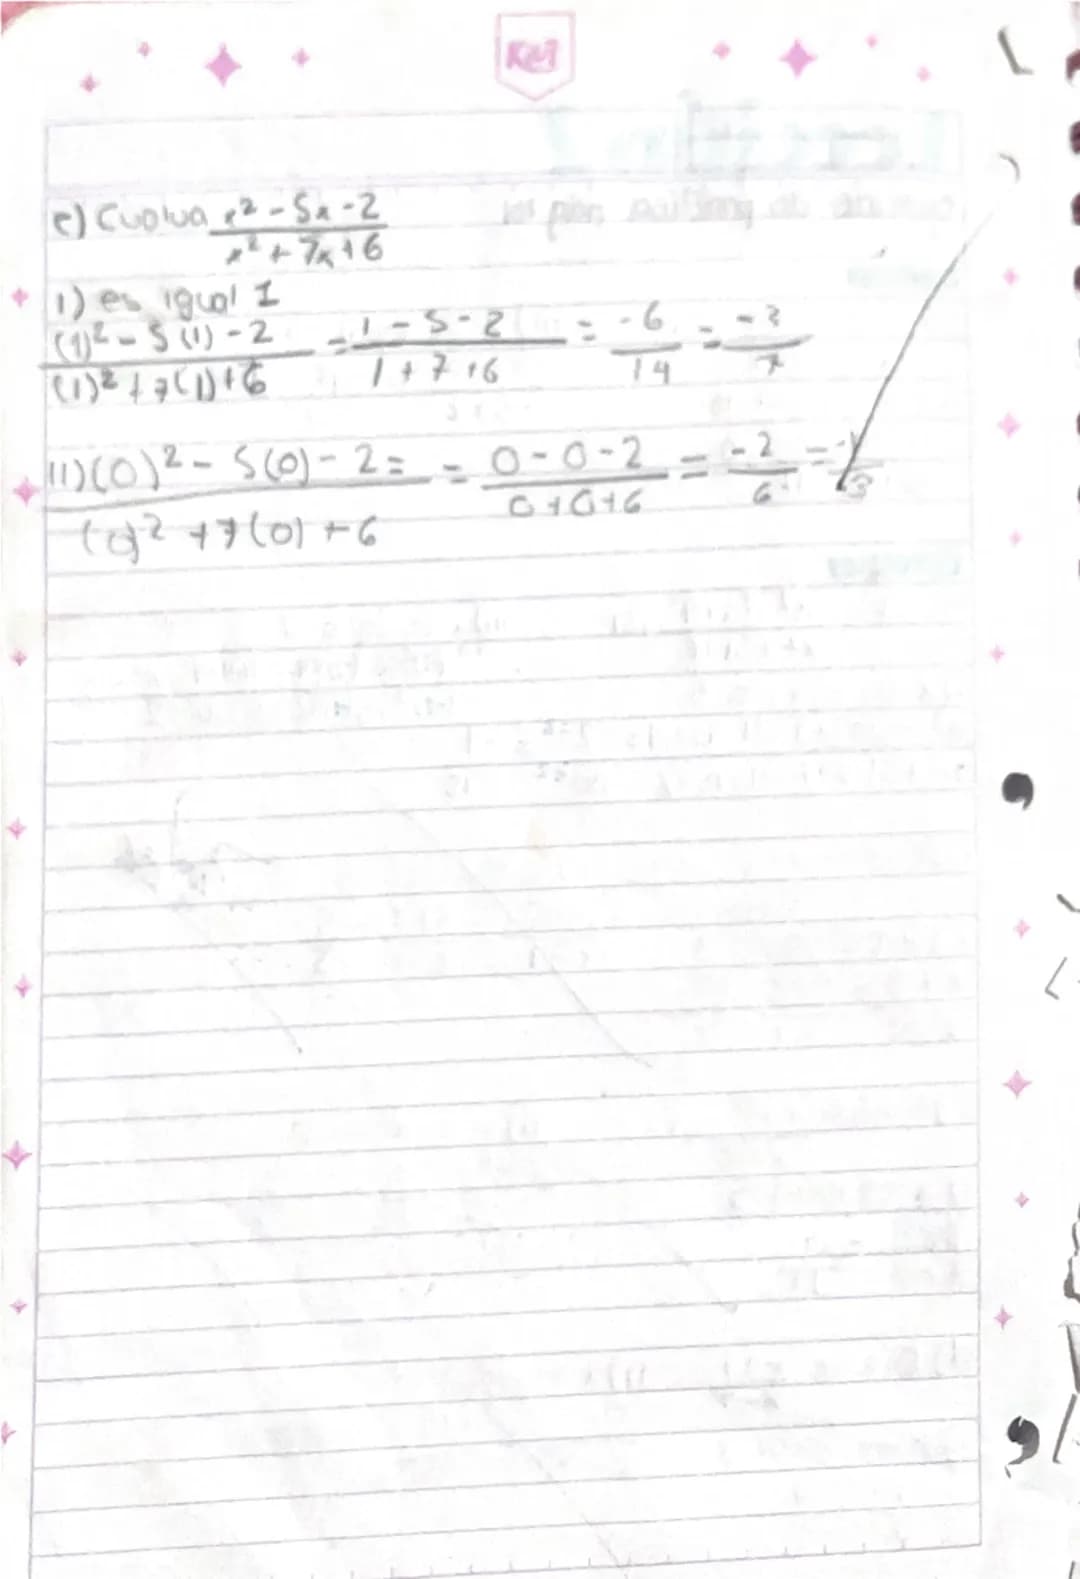 e) Evalua x² - 5x - 2 / x² + 7x + 6
1) es igual 1
(1)² - 5(1) - 2 / (1)² + 7(1) + 6 = 1 - 5 - 2 / 1 + 7 + 6 = -6 / 14 = -3 / 7
11) (0)² - 5(0) - 2 = / (0)² + 7(0) + 6 = 0 - 0 - 2 / 0 + 0 + 6 = -2 / 6 = -1 / 3